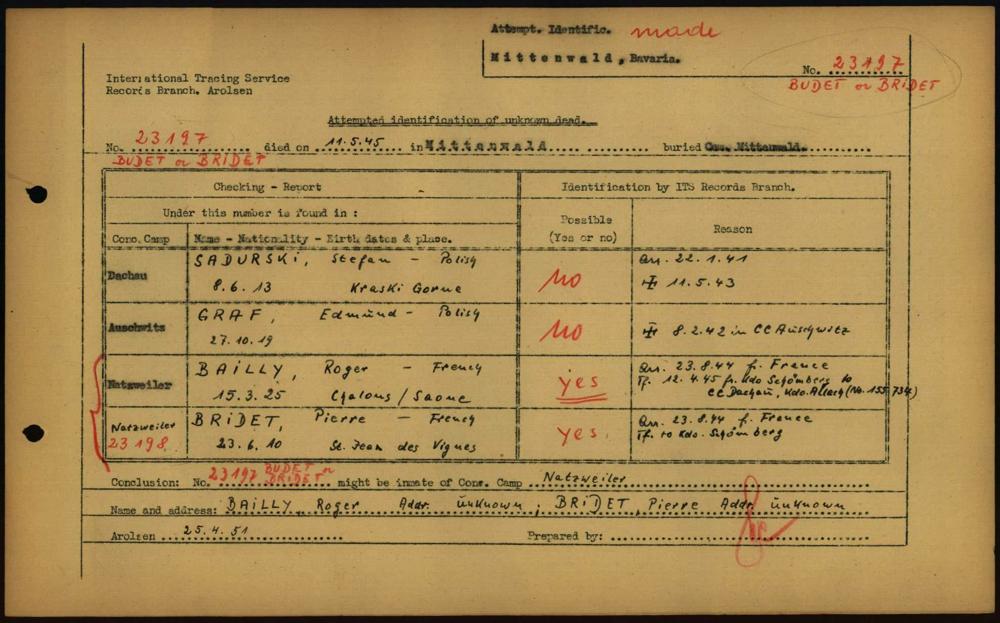 Attempt. Identific. made
Mittenwald, Bavaria.
No. 23197
BUDET or BRiDET
International Tracing Service
Records Branch, Arolsen
Attempted identification of unknown dead.
No. 23197 died on 11.5.45 in Mittenwald buried Cem. Mittenwald.
BUDET or BRiDET
Checking - Report
Identification by ITS Records Branch.
Under this number is found in :
Possible (Yes or no)
Reason
Conc. Camp
Name - Nationality - Birth dates & place.
Dachau
SADURSKi, Stefan - Polish
8.6.13 Kraski Gorne
no
Arr. 22.1.41
11.5.43
Auschwitz
GRAF, Edmund - Polish
27.10.19
no
8.2.42 in CC Auschwitz
Natzweiler
BAiLLY, Roger - French
15.3.25 Chalons / Saone
yes
Arr. 23.8.44 f. France
Tf. 12.4.45 fr. Kdo Schömberg to
CC Dachau, Kdo. Allach (No. 155 734)
Natzweiler
23198
BRiDET, Pierre - French
23.6.10 St. Jean des Vignes
yes
Arr. 23.8.44 f. France
Tf. to Kdo. Schömberg
Conclusion: No. 23197 BUDET or BRiDET might be inmate of Conc. Camp Natzweiler
Name and address: BAiLLY, Roger Addr. unknown, BRiDET, Pierre Addr. unknown
Arolsen 25.4.51 Prepared by: